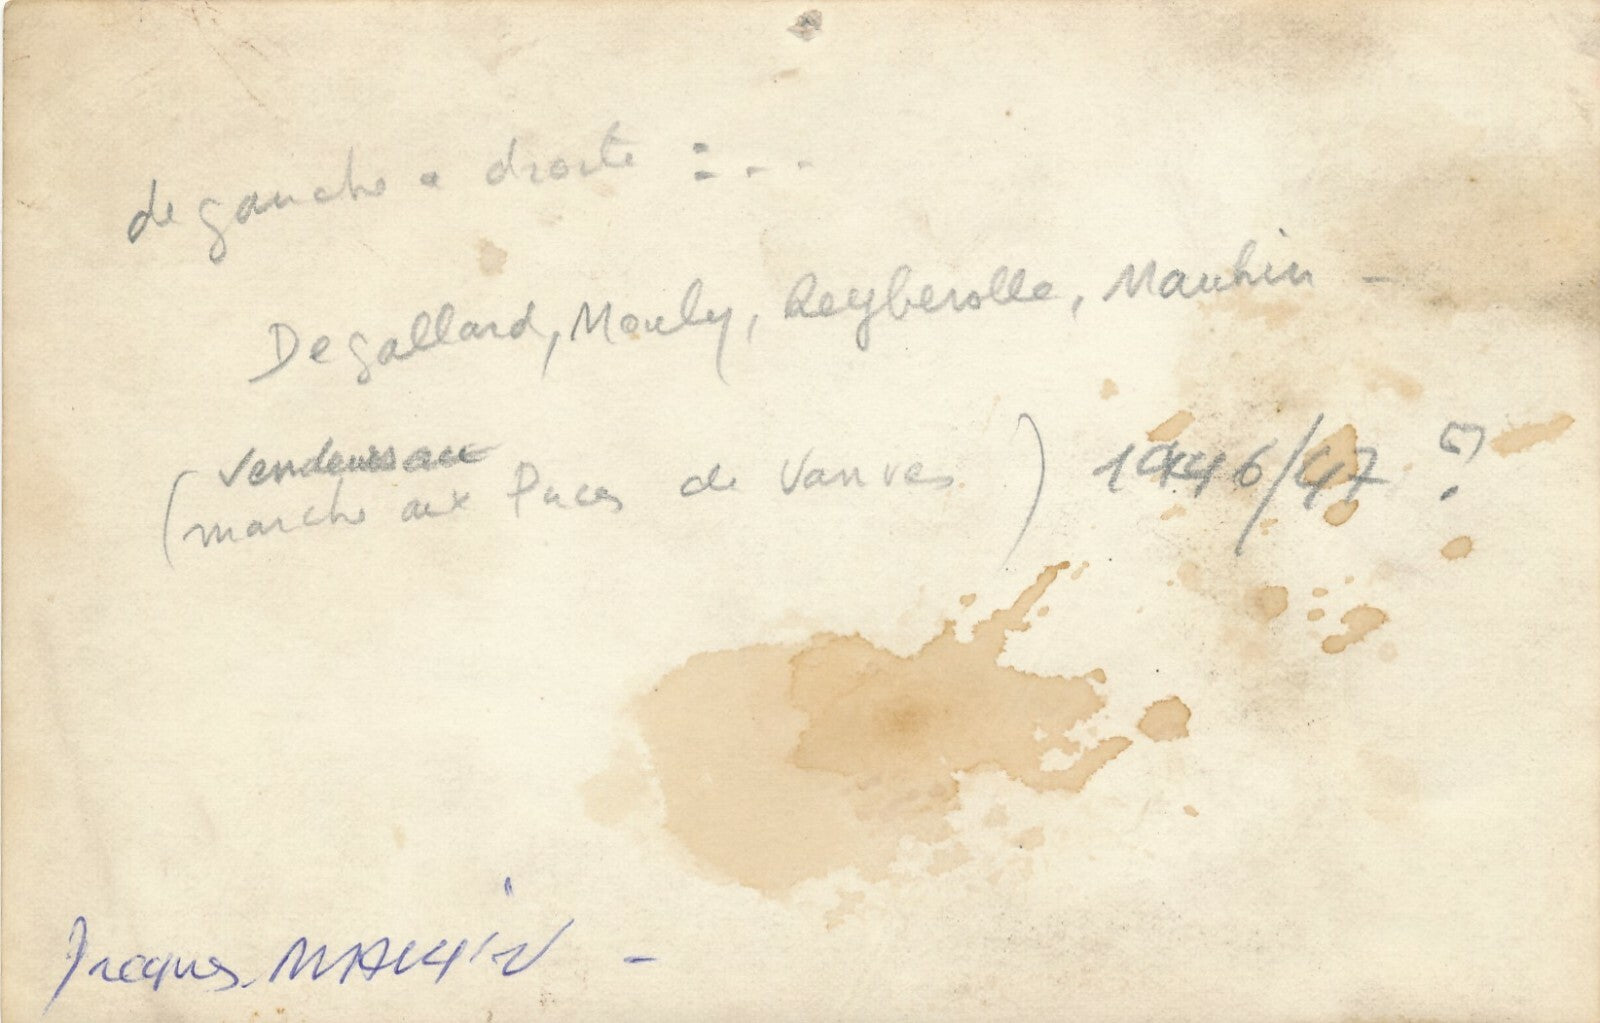 de gauche a droite : . . .
Degallard, Mouly, Reyberolle, Mauhin -
vendeurs au
(marche aux Puces de Vanves) 1946/47 ?
Jacques MAUHIN -